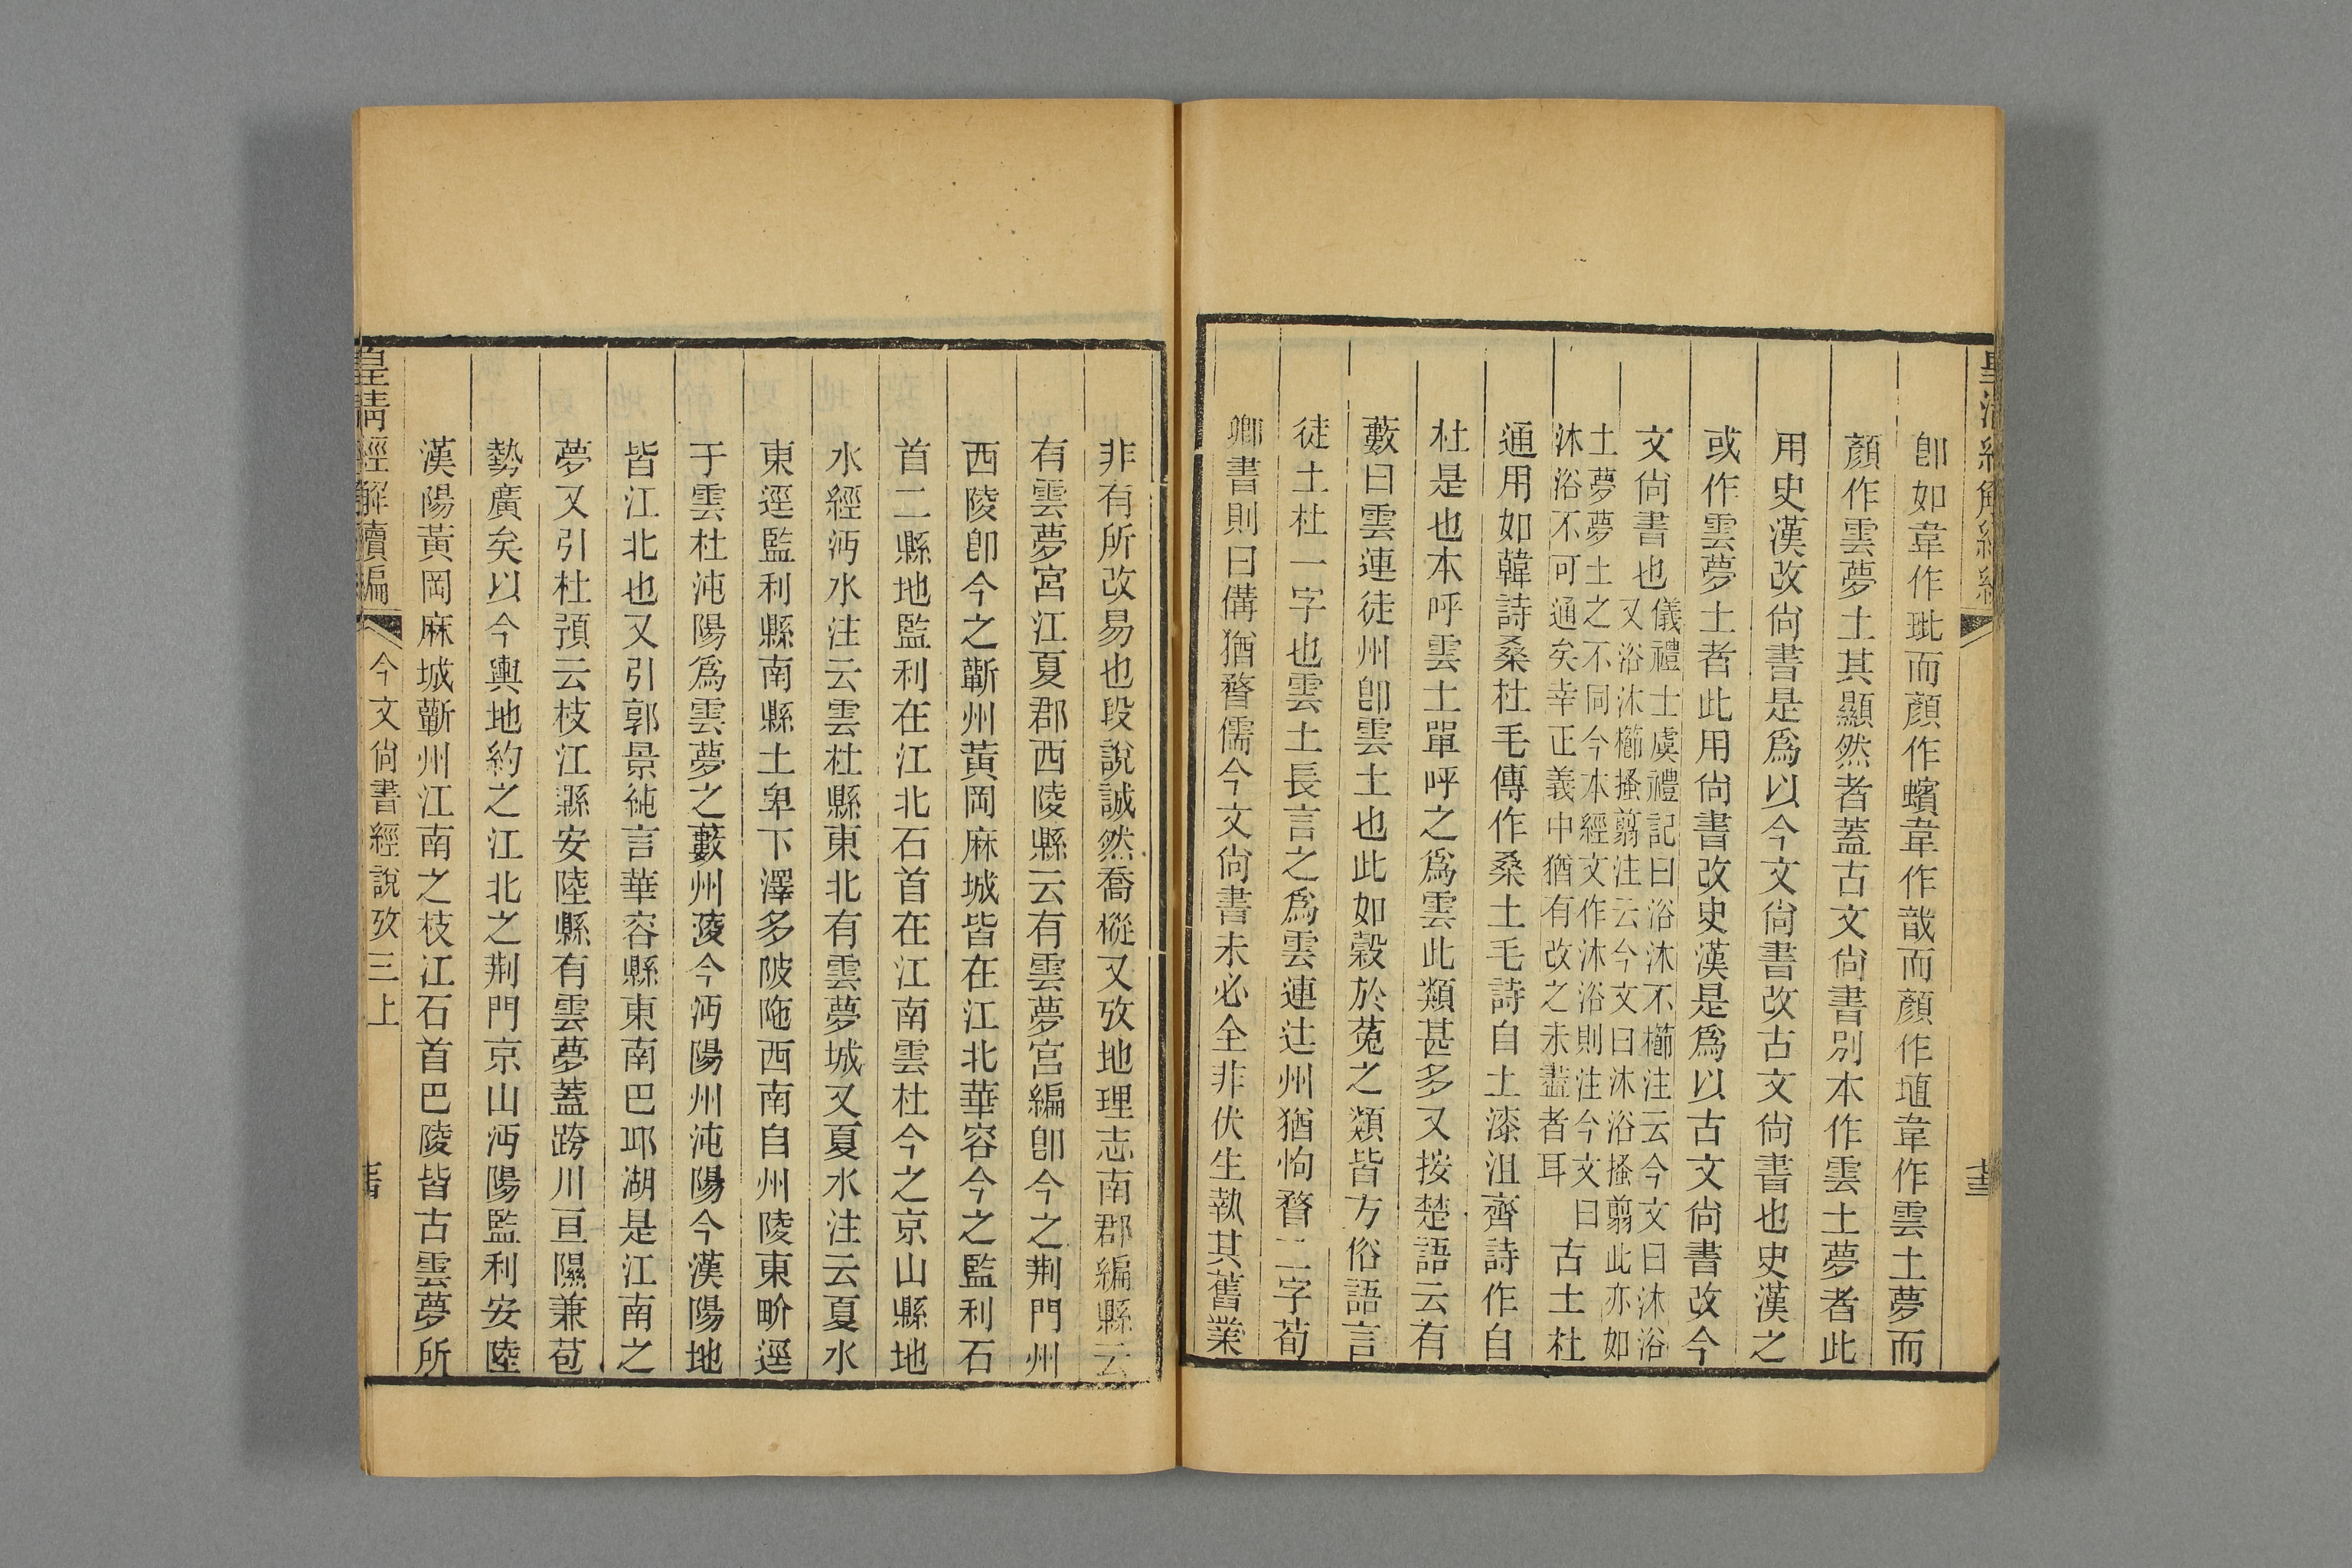 卽如韋作玭而顏作蠙韋作戠而顏作埴韋作雲土夢而
顏作雲夢土其顯然者蓋古文尙書別本作雲土夢者此
用史漢改尙書是爲以今文尙書改古文尙書也史漢之
或作雲夢土者此用尙書改史漢是爲以古文尙書改今
文尙書也
儀禮士虞禮記曰浴沐不櫛注云今文曰沐浴
又浴沐櫛搔翦注云今文曰沐浴搔翦此亦如
土夢夢土之不同今本經文作沐浴則注今文曰
沐浴不可通矣幸正義中猶有改之未盡者耳
古土杜
通用如韓詩桑杜毛傳作桑土毛詩自土漆沮齊詩作自
杜是也本呼雲土單呼之爲雲此類甚多又按楚語云有
藪曰雲連徒州卽雲土也此如榖於菟之類皆方俗語言
徒土杜一字也雲土長言之爲雲連辻州猶怐瞀二字荀
卿書則曰傋猶瞀儒今文尙書未必全非伏生執其舊業
非有所改易也段說誠然喬樅又攷地理志南郡編縣云
有雲夢宮江夏郡西陵縣云有雲夢宮編卽今之荆門州
西陵卽今之蘄州黃岡麻城皆在江北華容今之監利石
首二縣地監利在江北石首在江南雲杜今之京山縣地
水經沔水注云雲杜縣東北有雲夢城又夏水注云夏水
東逕監利縣南縣土卑下澤多陂陁西南自州陵東畍逕
于雲杜沌陽爲雲夢之藪州陵今沔陽州沌陽今漢陽地
皆江北也又引郭景純言華容縣東南巴邱湖是江南之
夢又引杜預云枝江縣安陸縣有雲夢蓋跨川亘隰兼苞
勢廣矣以今輿地約之江北之荆門京山沔陽監利安陸
漢陽黃岡麻城蘄州江南之枝江石首巴陵皆古雲夢所
皇淸經解續編
今文尙書經說攷三上